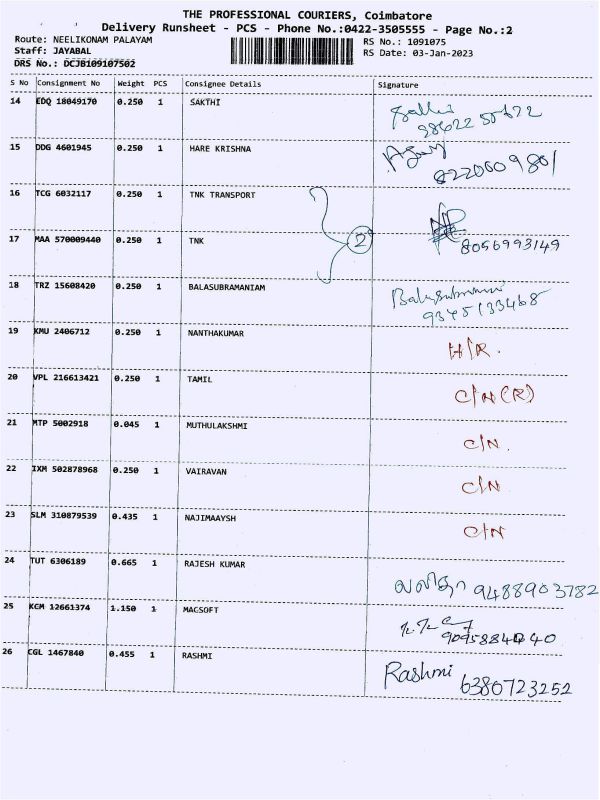 THE PROFESSIONAL COURIERS, Coimbatore
Delivery Runsheet - PCS - Phone No.:0422-3505555 - Page No.:2
Route: NEELIKONAM PALAYAM
Staff: JAYABAL
DRS No.: DCJB109107502
RS No.: 1091075
RS Date: 03-Jan-2023
S No Consignment No Weight PCS Consignee Details Signature
14 EDQ 18049170 0.250 1 SAKTHI
15 DDG 4601945 0.250 1 HARE KRISHNA
16 TCG 6032117 0.250 1 TNK TRANSPORT
17 MAA 570009440 0.250 1 TNK 2 8056993149
18 TRZ 15608420 0.250 1 BALASUBRAMANIAM Balasubramani
9345133468
19 KMU 2406712 0.250 1 NANTHAKUMAR H/R.
20 VPL 216613421 0.250 1 TAMIL C/N (R)
21 MTP 5002918 0.045 1 MUTHULAKSHMI C/N.
22 IXM 502878968 0.250 1 VAIRAVAN C/N
23 SLM 310879539 0.435 1 NAJIMAAYSH C/N
24 TUT 6306189 0.665 1 RAJESH KUMAR 9488903782
25 KCM 12661374 1.150 1 MAGSOFT
26 CGL 1467840 0.455 1 RASHMI Rashmi 6380723252